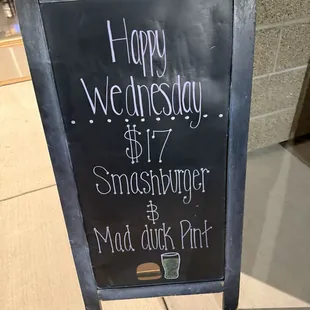 Happy
Wednesday
$17
Smashburger
&
Mad duck Pint